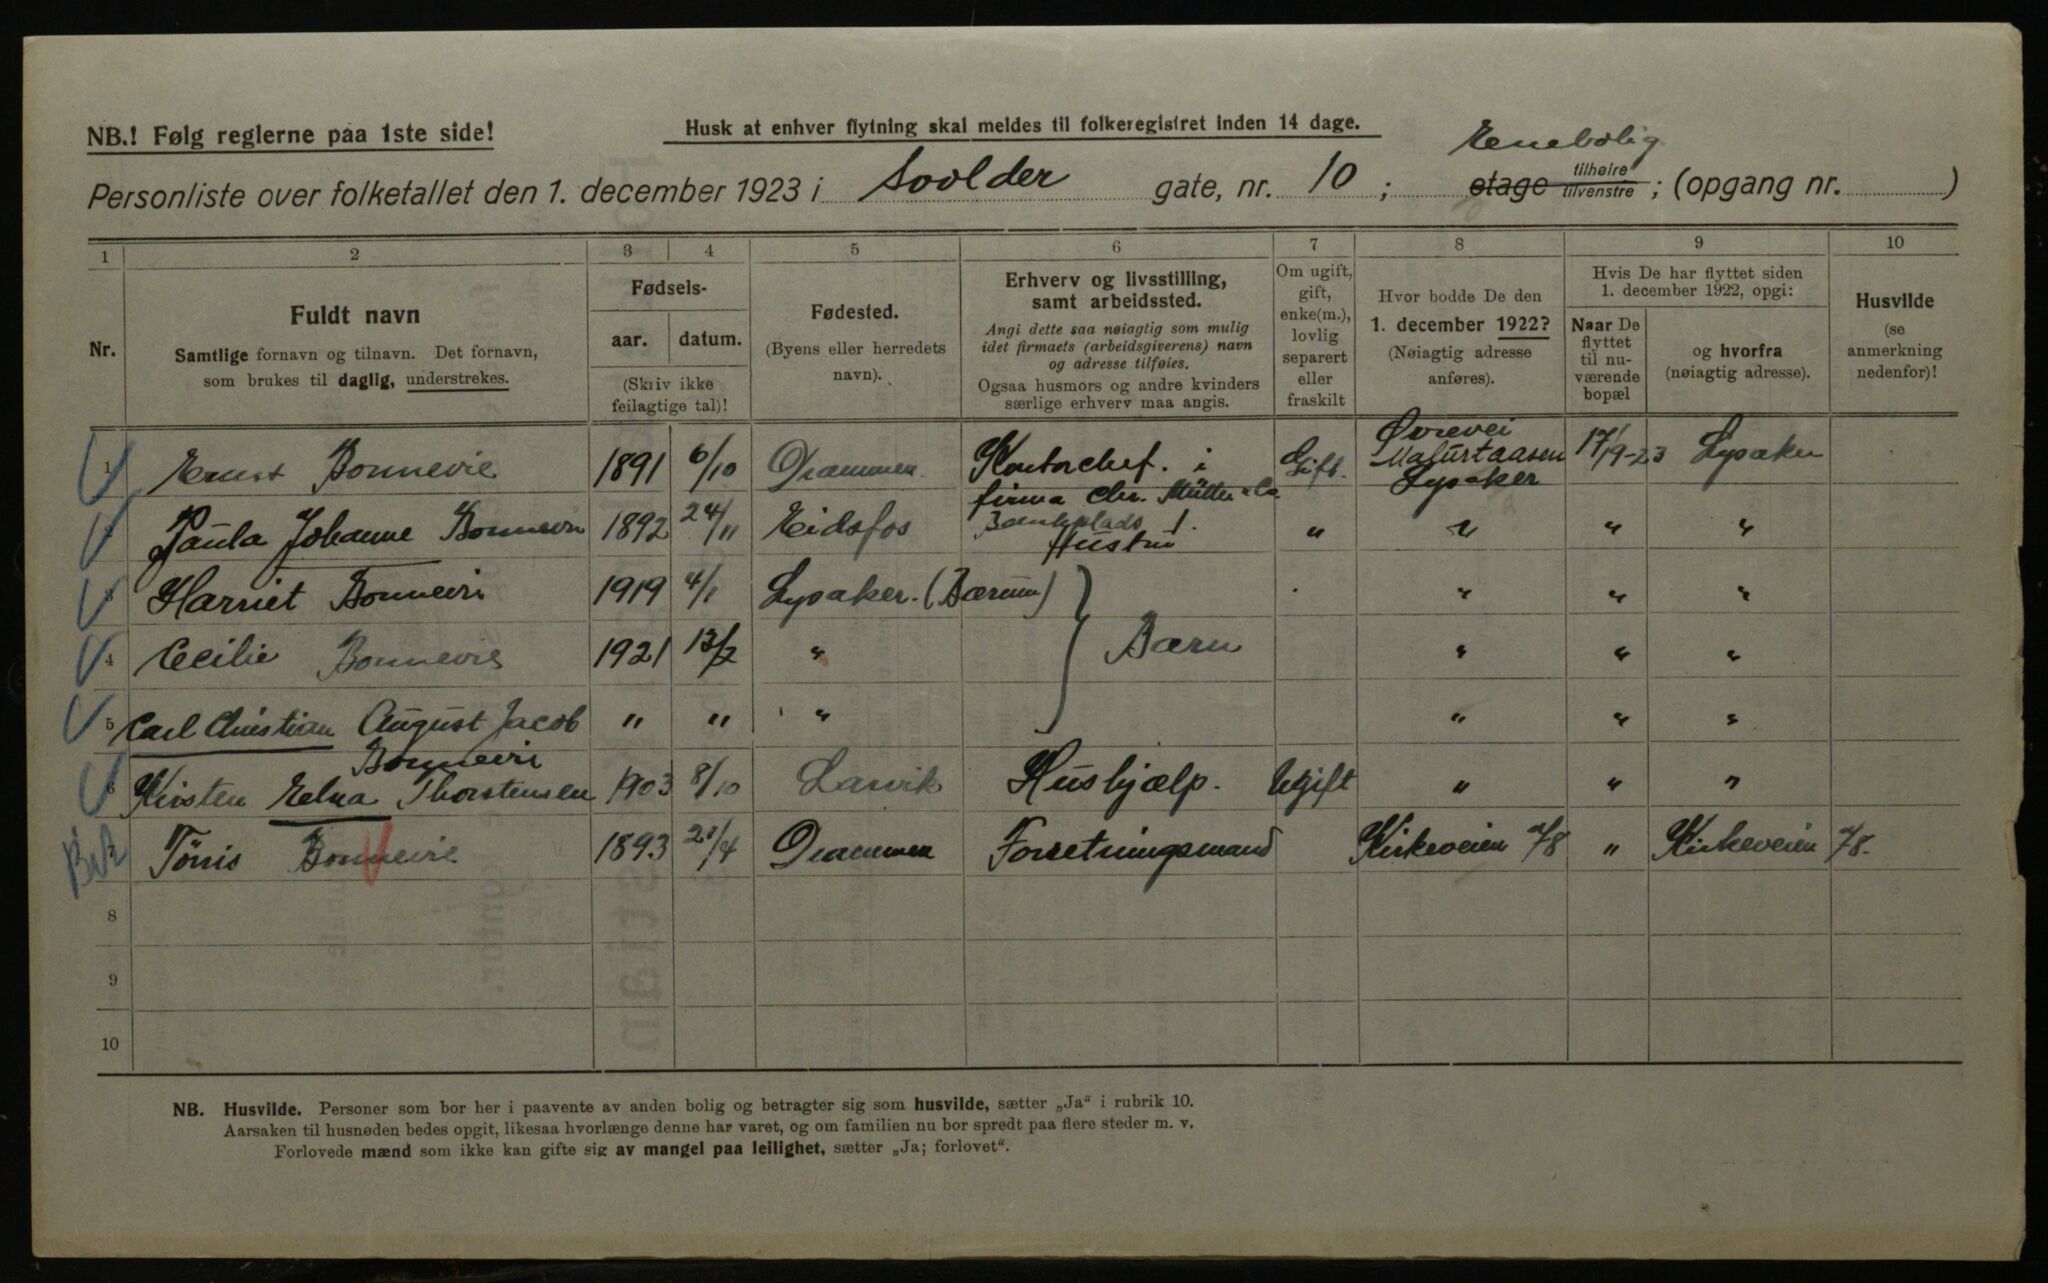 NB.! Følg reglerne paa 1ste side!
Husk at enhver flytning skal meldes til folkeregistret inden 14 dage.
Enebolig
Personliste over folketallet den 1. december 1923 i Svolder gate, nr. 10; etage tilhøire tilvenstre; (opgang nr. )
1 2 3 4 5 6 7 8 9 10
Nr.
Fuldt navn
Samtlige fornavn og tilnavn. Det fornavn,
som brukes til daglig, understrekes.
Fødsels-
aar. datum.
(Skriv ikke
feilagtige tal)!
Fødested.
(Byens eller herredets
navn).
Erhverv og livsstilling,
samt arbeidssted.
Angi dette saa nøiagtig som mulig
idet firmaets (arbeidsgiverens) navn
og adresse tilføies.
Ogsaa husmors og andre kvinders
særlige erhverv maa angis.
Om ugift,
gift,
enke(m.),
lovlig
separert
eller
fraskilt
Hvor bodde De den
1. december 1922?
(Nøiagtig adresse
anføres).
Hvis De har flyttet siden
1. december 1922, opgi:
Naar De
flyttet
til nu-
værende
bopæl
og hvorfra
(nøiagtig adresse).
Husvilde
(se
anmerkning
nedenfor)!
1 Ernst Bonnevie 1891 6/10 Drammen Kontorchef. i firma Chr. Gift. Øvrevei Lysaker Lysaker
2 Paula Johanne Bonnevie 1892 24/11 Eidsfos Bankplads 1. Hustru " " " "
3 Harriet Bonnevie 1919 4/1 Lysaker. (Bærum) " " "
4 Cecilie Bonnevie 1921 13/2 " Børn " " "
5 Carl Christian August Jacob Bonnevie " " " " " "
6 Kirsten Edna Thorstensen 1903 8/10 Larvik Hushjælp. Ugift " " "
7 Tönis Bonnevie 1893 Drammen Forretningsmand Kirkeveien 78 " Kirkeveien 78.
8
9
10
NB. Husvilde. Personer som bor her i paavente av anden bolig og betragter sig som husvilde, sætter „Ja" i rubrik 10.
Aarsaken til husnøden bedes opgit, likesaa hvorlænge denne har varet, og om familien nu bor spredt paa flere steder m. v.
Forlovede mænd som ikke kan gifte sig av mangel paa leilighet, sætter „Ja; forlovet".